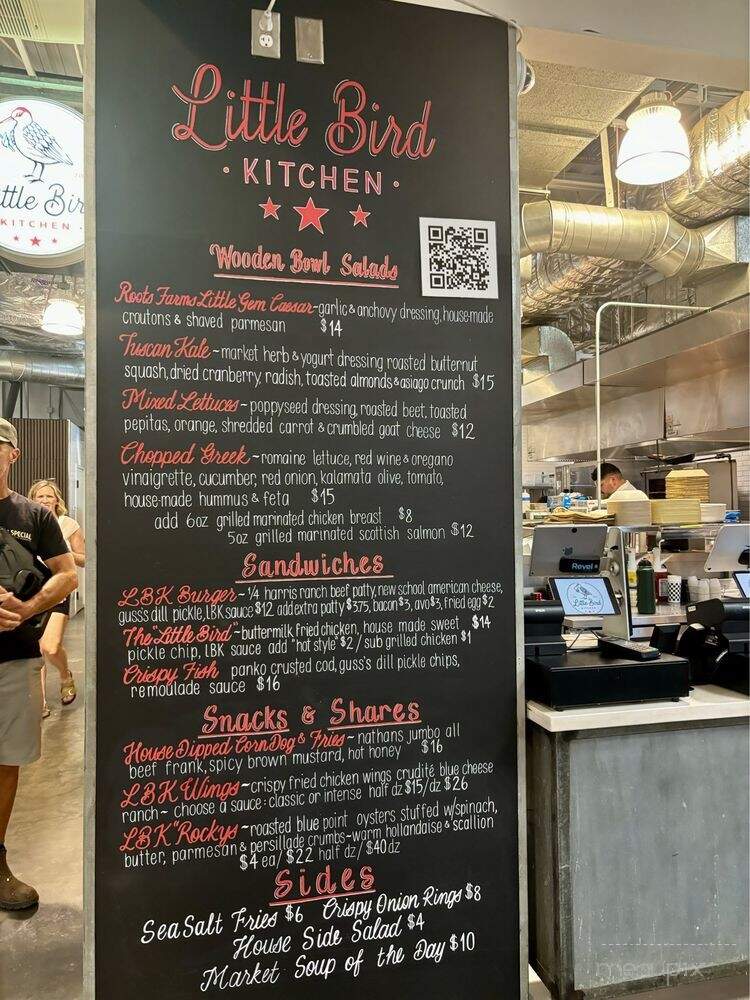 Little Bird
· KITCHEN ·
ttle Bir
KITCHEN
Wooden Bowl Salads
Roots Farms Little Gem Caesar - garlic & anchovy dressing, house-made
croutons & shaved parmesan $14
Tuscan Kale ~ market herb & yogurt dressing roasted butternut
squash, dried cranberry, radish, toasted almonds & asiago crunch $15
Mixed Lettuces ~ poppyseed dressing, roasted beet, toasted
pepitas, orange, shredded carrot & crumbled goat cheese $12
Chopped Greek ~ romaine lettuce, red wine & oregano
vinaigrette, cucumber, red onion, kalamata olive, tomato,
house-made hummus & feta $15
add 6oz grilled marinated chicken breast $8
5oz grilled marinated scottish salmon $12
Sandwiches
LBK Burger ~ 1/4 harris ranch beef patty, new school american cheese,
guss's dill pickle, LBK sauce $12 add extra patty $3.75, bacon $3, avo $3, fried egg $2
The "Little Bird" ~ buttermilk fried chicken, house made sweet $14
pickle chip, LBK sauce add "hot style" $2 / sub grilled chicken $1
Crispy Fish panko crusted cod, guss's dill pickle chips,
remoulade sauce $16
Snacks & Shares
House Dipped Corn Dog & Fries ~ nathans jumbo all
beef frank, spicy brown mustard, hot honey $16
LBK Wings ~ crispy fried chicken wings crudité blue cheese
ranch ~ choose a sauce: classic or intense half dz $15/dz $26
LBK "Rockys ~ roasted blue point oysters stuffed w/spinach,
butter, parmesan & persillade crumbs - warm hollandaise & scallion
$4 ea/ $22 half dz/ $40 dz
Sides
Sea Salt Fries $6 Crispy Onion Rings $8
House Side Salad $4
Market Soup of the Day $10
SPECIAL
Revel
Little Bird
menupix